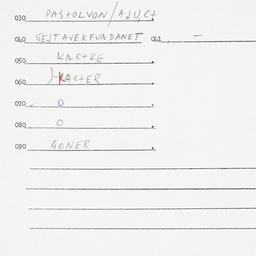 030 PASTOLVON/AJUCT
040 GEJTAVEKFUNDANET 041 —
050 KACTKE
060 )-KACTER
070 0
080 0
090 GONER